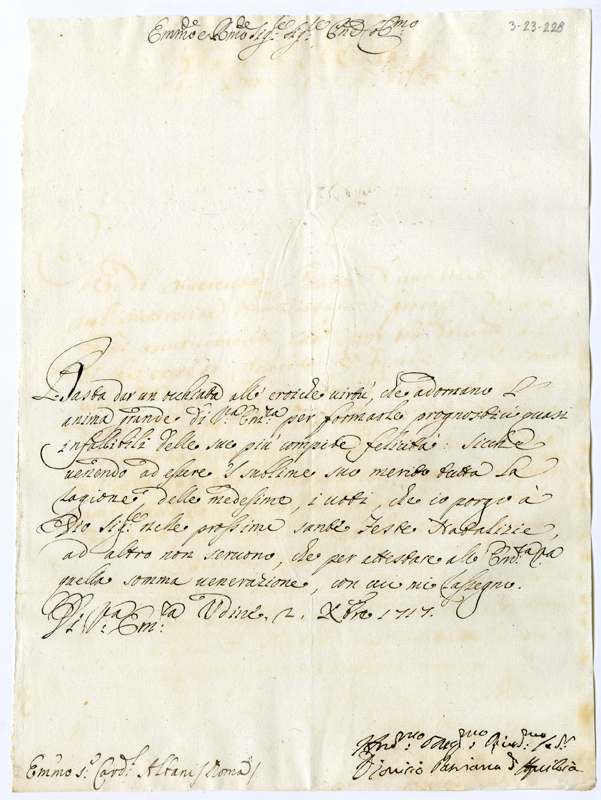 3-23-228
Emmo e Rmo Sigre Sigre Pne Colmo
Basta dar un occhiata alle eroiche virtù, che adornano l'
anima grande di V.ra Em.za per formarle prognostici quasi
infallibili delle sue più compite felicità: sicchè
venendo ad essere il sublime suo merito tutta la
cagione delle medesime, i voti, che io porgo à
Dio Sig.re nelle prossime sante Feste Natalizie,
ad altro non seruono, che per attestare all
quella somma uenerazione, con cui mi rassegno.
Di V.ra Em.za Udine, 2. Xbre 1717.
Dionisio Patriarca d'Aquileia
Em̃mo S.r Card.l Albani (Roma)